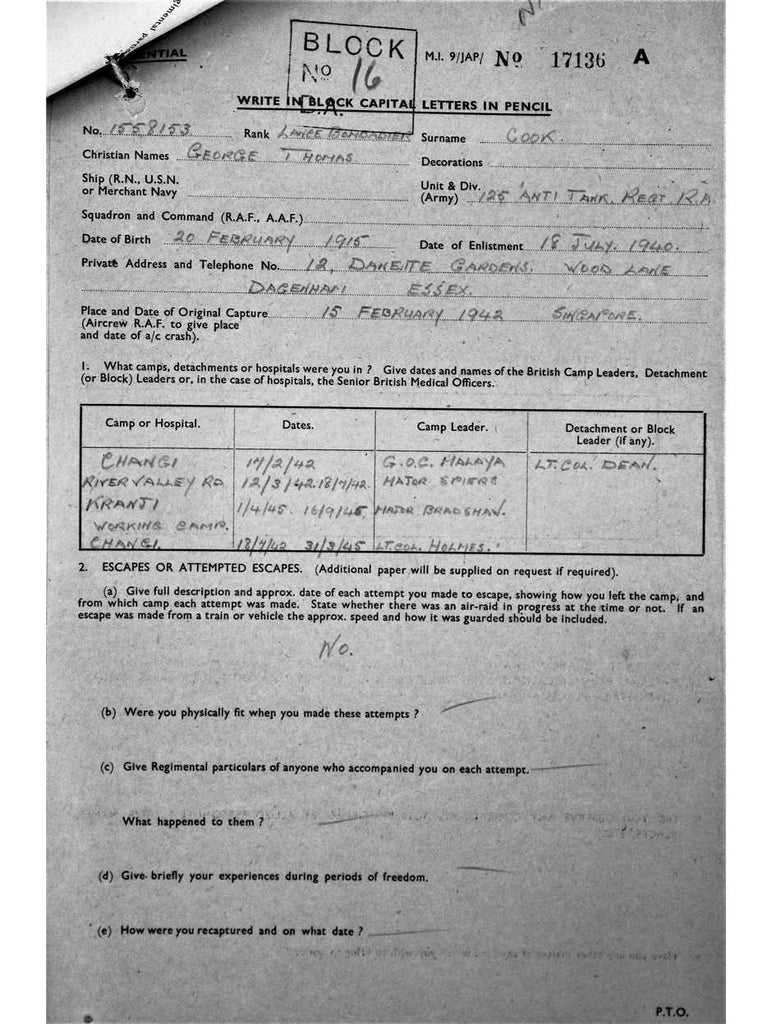 BLOCK
No 16
D.A.
M.I. 9/JAP/ No 17136 A
WRITE IN BLOCK CAPITAL LETTERS IN PENCIL
No. 1558153 Rank LANCE BOMBADIER Surname COOK.
Christian Names GEORGE THOMAS Decorations
Ship (R.N., U.S.N. or Merchant Navy
Unit & Div. (Army) 125 ANTI TANK REGT. R.A
Squadron and Command (R.A.F., A.A.F.)
Date of Birth 20 FEBRUARY 1915 Date of Enlistment 18 JULY. 1940.
Private Address and Telephone No. 12, GARDENS. WOOD LANE
DAGENHAM ESSEX.
Place and Date of Original Capture 15 FEBRUARY 1942 SINGAPORE.
(Aircrew R.A.F. to give place
and date of a/c crash).
1. What camps, detachments or hospitals were you in ? Give dates and names of the British Camp Leaders, Detachment
(or Block) Leaders or, in the case of hospitals, the Senior British Medical Officers.
Camp or Hospital. Dates. Camp Leader. Detachment or Block Leader (if any).
CHANGI 17/2/42 G.O.C. MALAYA LT. COL. DEAN.
RIVER VALLEY RD 12/3/42. 18/7/42. MAJOR SPIERS
KRANJI 1/4/45. 16/9/45, MAJOR BRADSHAW.
WORKING CAMP.
CHANGI. 18/7/42 31/3/45 LT. COL. HOLMES.
2. ESCAPES OR ATTEMPTED ESCAPES. (Additional paper will be supplied on request if required).
(a) Give full description and approx. date of each attempt you made to escape, showing how you left the camp, and
from which camp each attempt was made. State whether there was an air-raid in progress at the time or not. If an
escape was made from a train or vehicle the approx. speed and how it was guarded should be included.
No.
(b) Were you physically fit when you made these attempts ?
(c) Give Regimental particulars of anyone who accompanied you on each attempt.
What happened to them ?
(d) Give briefly your experiences during periods of freedom.
(e) How were you recaptured and on what date ?
P.T.O.